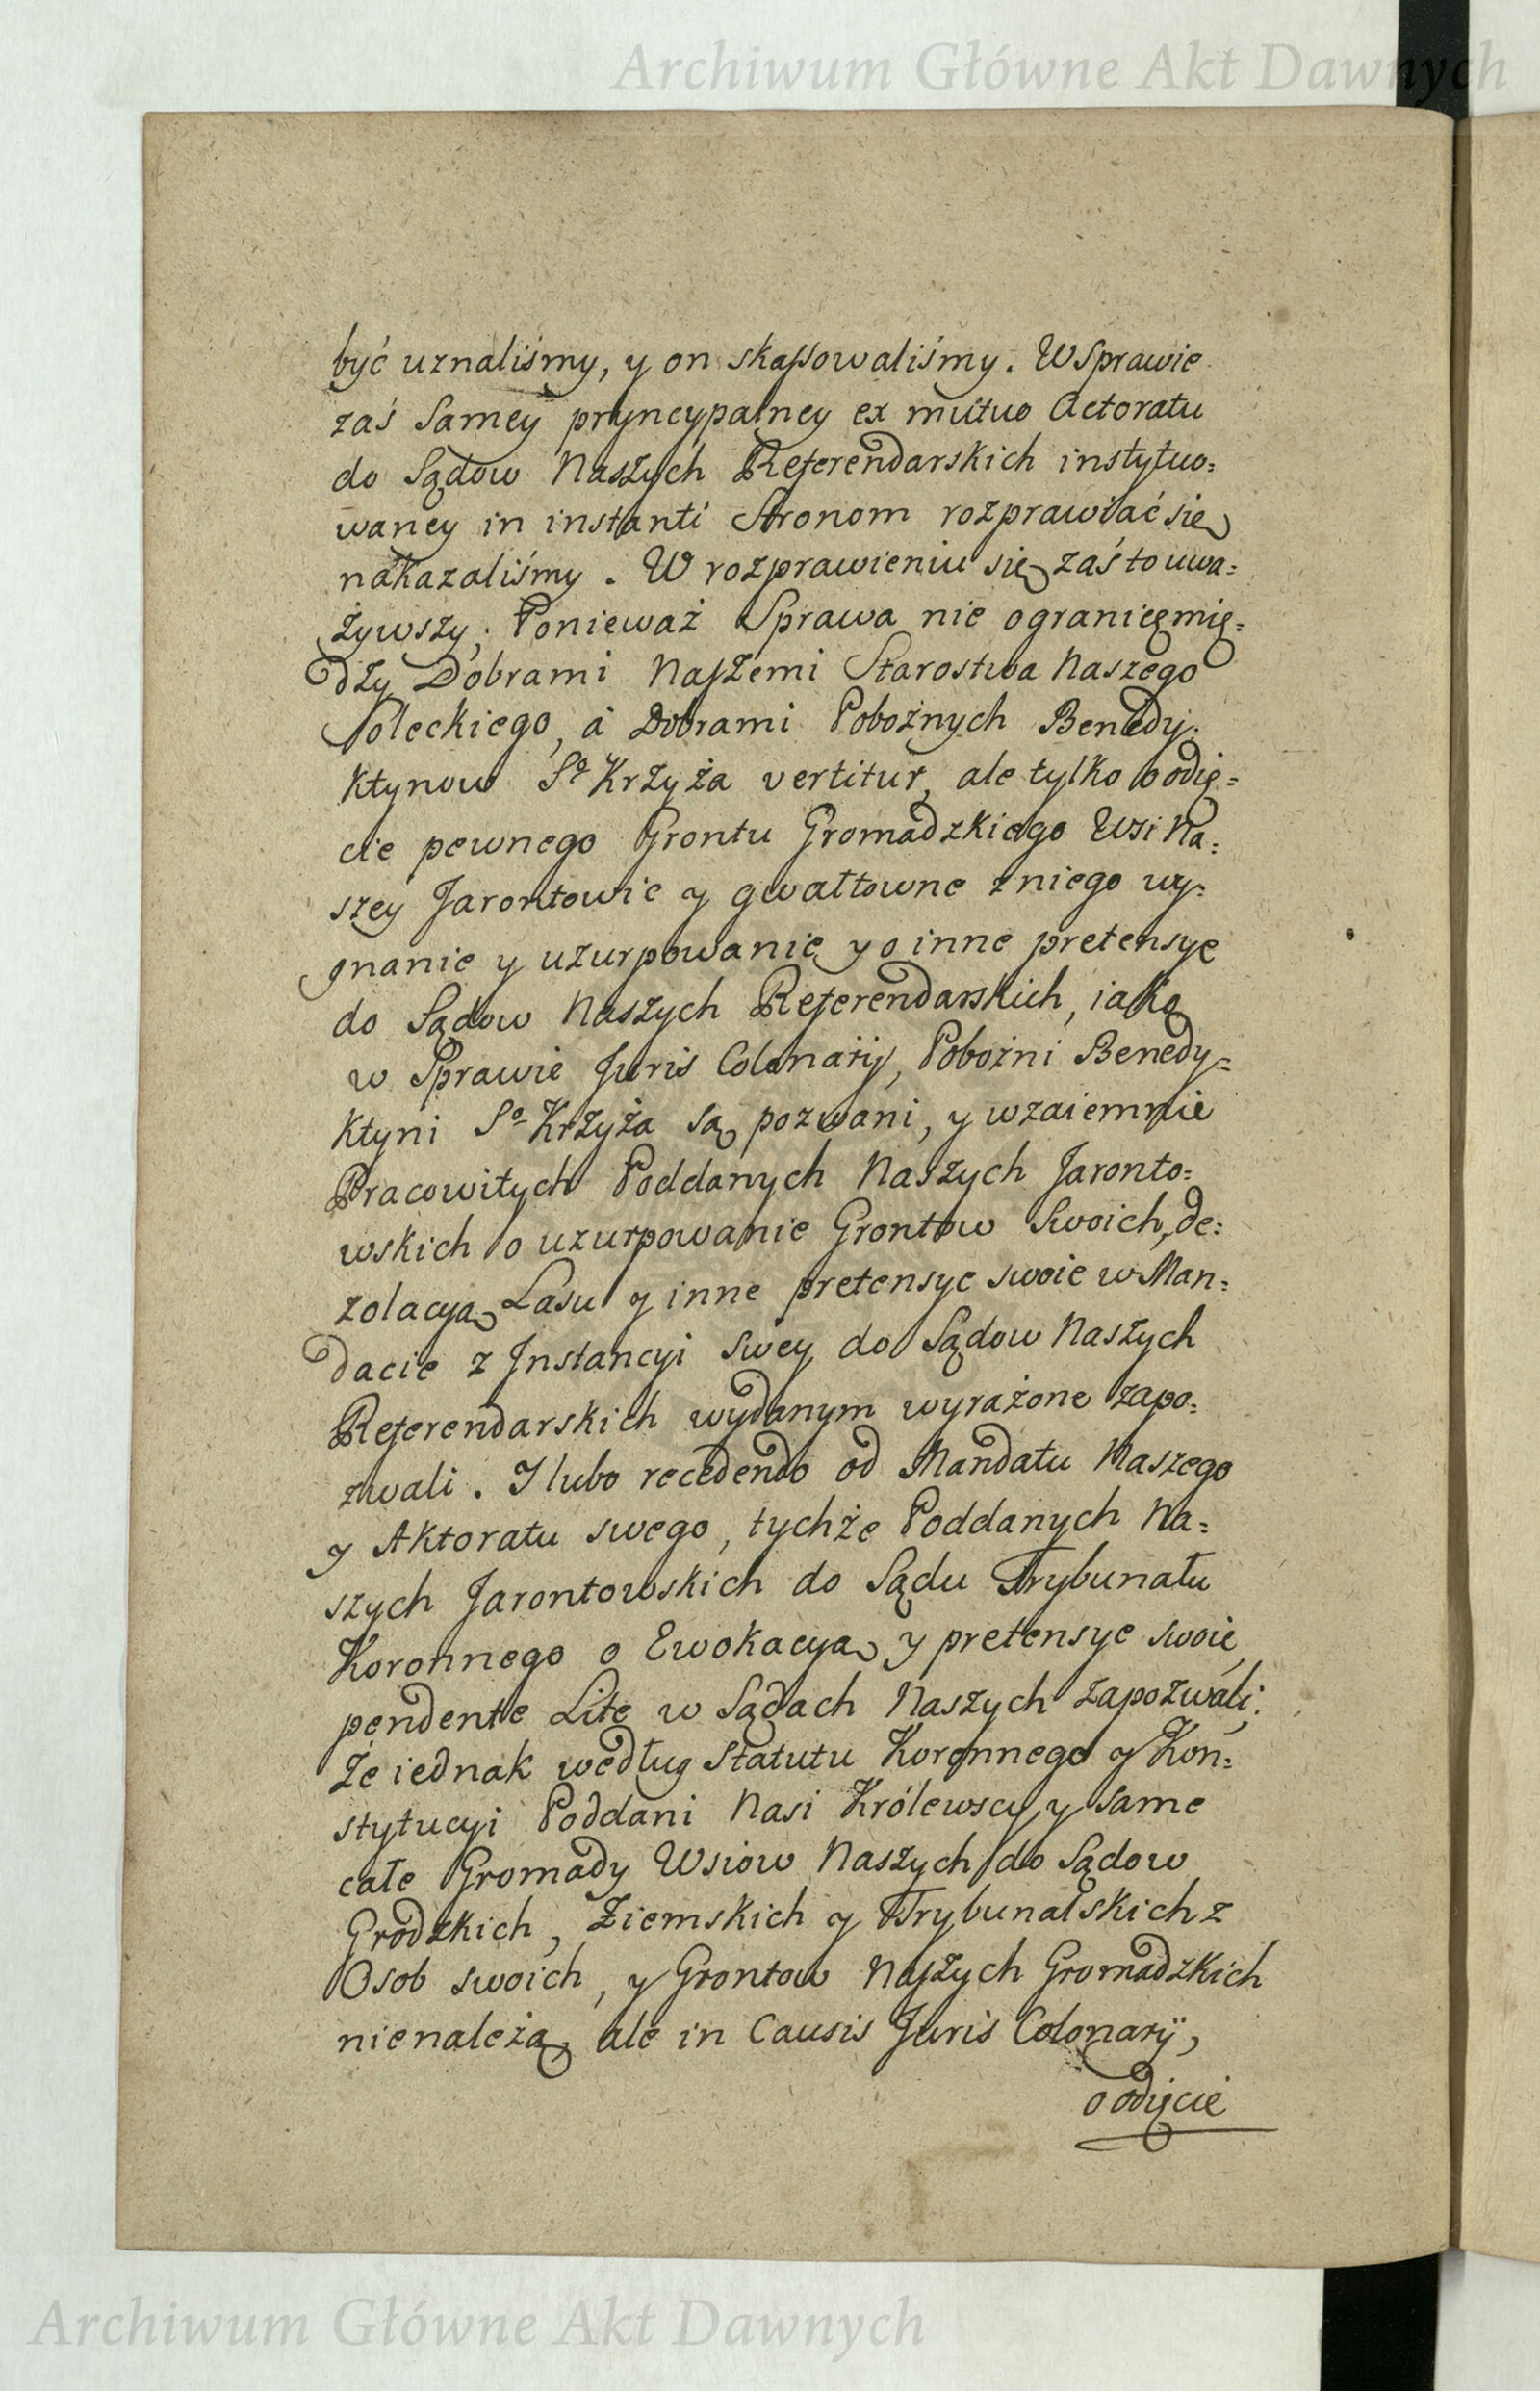 Archiwum Główne Akt Dawnych
być uznaliśmy, y on skassowaliśmy. W Sprawie
zaś Samey pryncypalney ex mutuo Actoratu
do Sądow Naszych Referendarskich instytuo=
waney in instanti Stronom rozprawiać się
nakazaliśmy. W rozprawieniu się zaś to uwa=
żywszy; Ponieważ Sprawa nie o granicę mię=
dzy Dobrami Naszemi Starostwa Naszego
Soleckiego, á Dobrami Pobożnych Benedy=
ktynow So Krzyża vertitur, ale tylko o odię=
cie pewnego Grontu Gromadzkiego Wsi Na=
szey Jarontowic y gwałtowne z niego wy=
gnanie y uzurpowanie, y o inne pretensye
do Sądow Naszych Referendarskich, iako
w Sprawie Juris Colonarij, Pobożni Benedy=
ktyni So Krzyża są pozwani, y wzaiemnie
Pracowitych Poddanych Naszych Jaronto=
wskich o uzurpowanie Grontow Swoich, de=
zolacyą Lasu y inne pretensye swoie w Man=
dacie z Instancyi Swey do Sądow Naszych
Referendarskich wydanym wyrażone zapo=
zwali. I lubo recedendo od Mandatu Naszego
y Aktoratu swego, tychże Poddanych Na=
szych Jarontowskich do Sądu Trybunału
Koronnego o Ewokacyą y pretensye swoie,
pendente Lite w Sądach Naszych zapozwáli;
Że iednak według Statutu Koronnego y Kon=
stytucyi Poddani Nasi Królewscy, y same
całe Gromady Wsiow Naszych do Sądow
Grodzkich, Ziemskich y Trybunalskich z
Osob swoich, y Grontow Naszych Gromadzkich
nienależą, ale in Causis Juris Colonarÿ,
o odięcie
Archiwum Główne Akt Dawnych